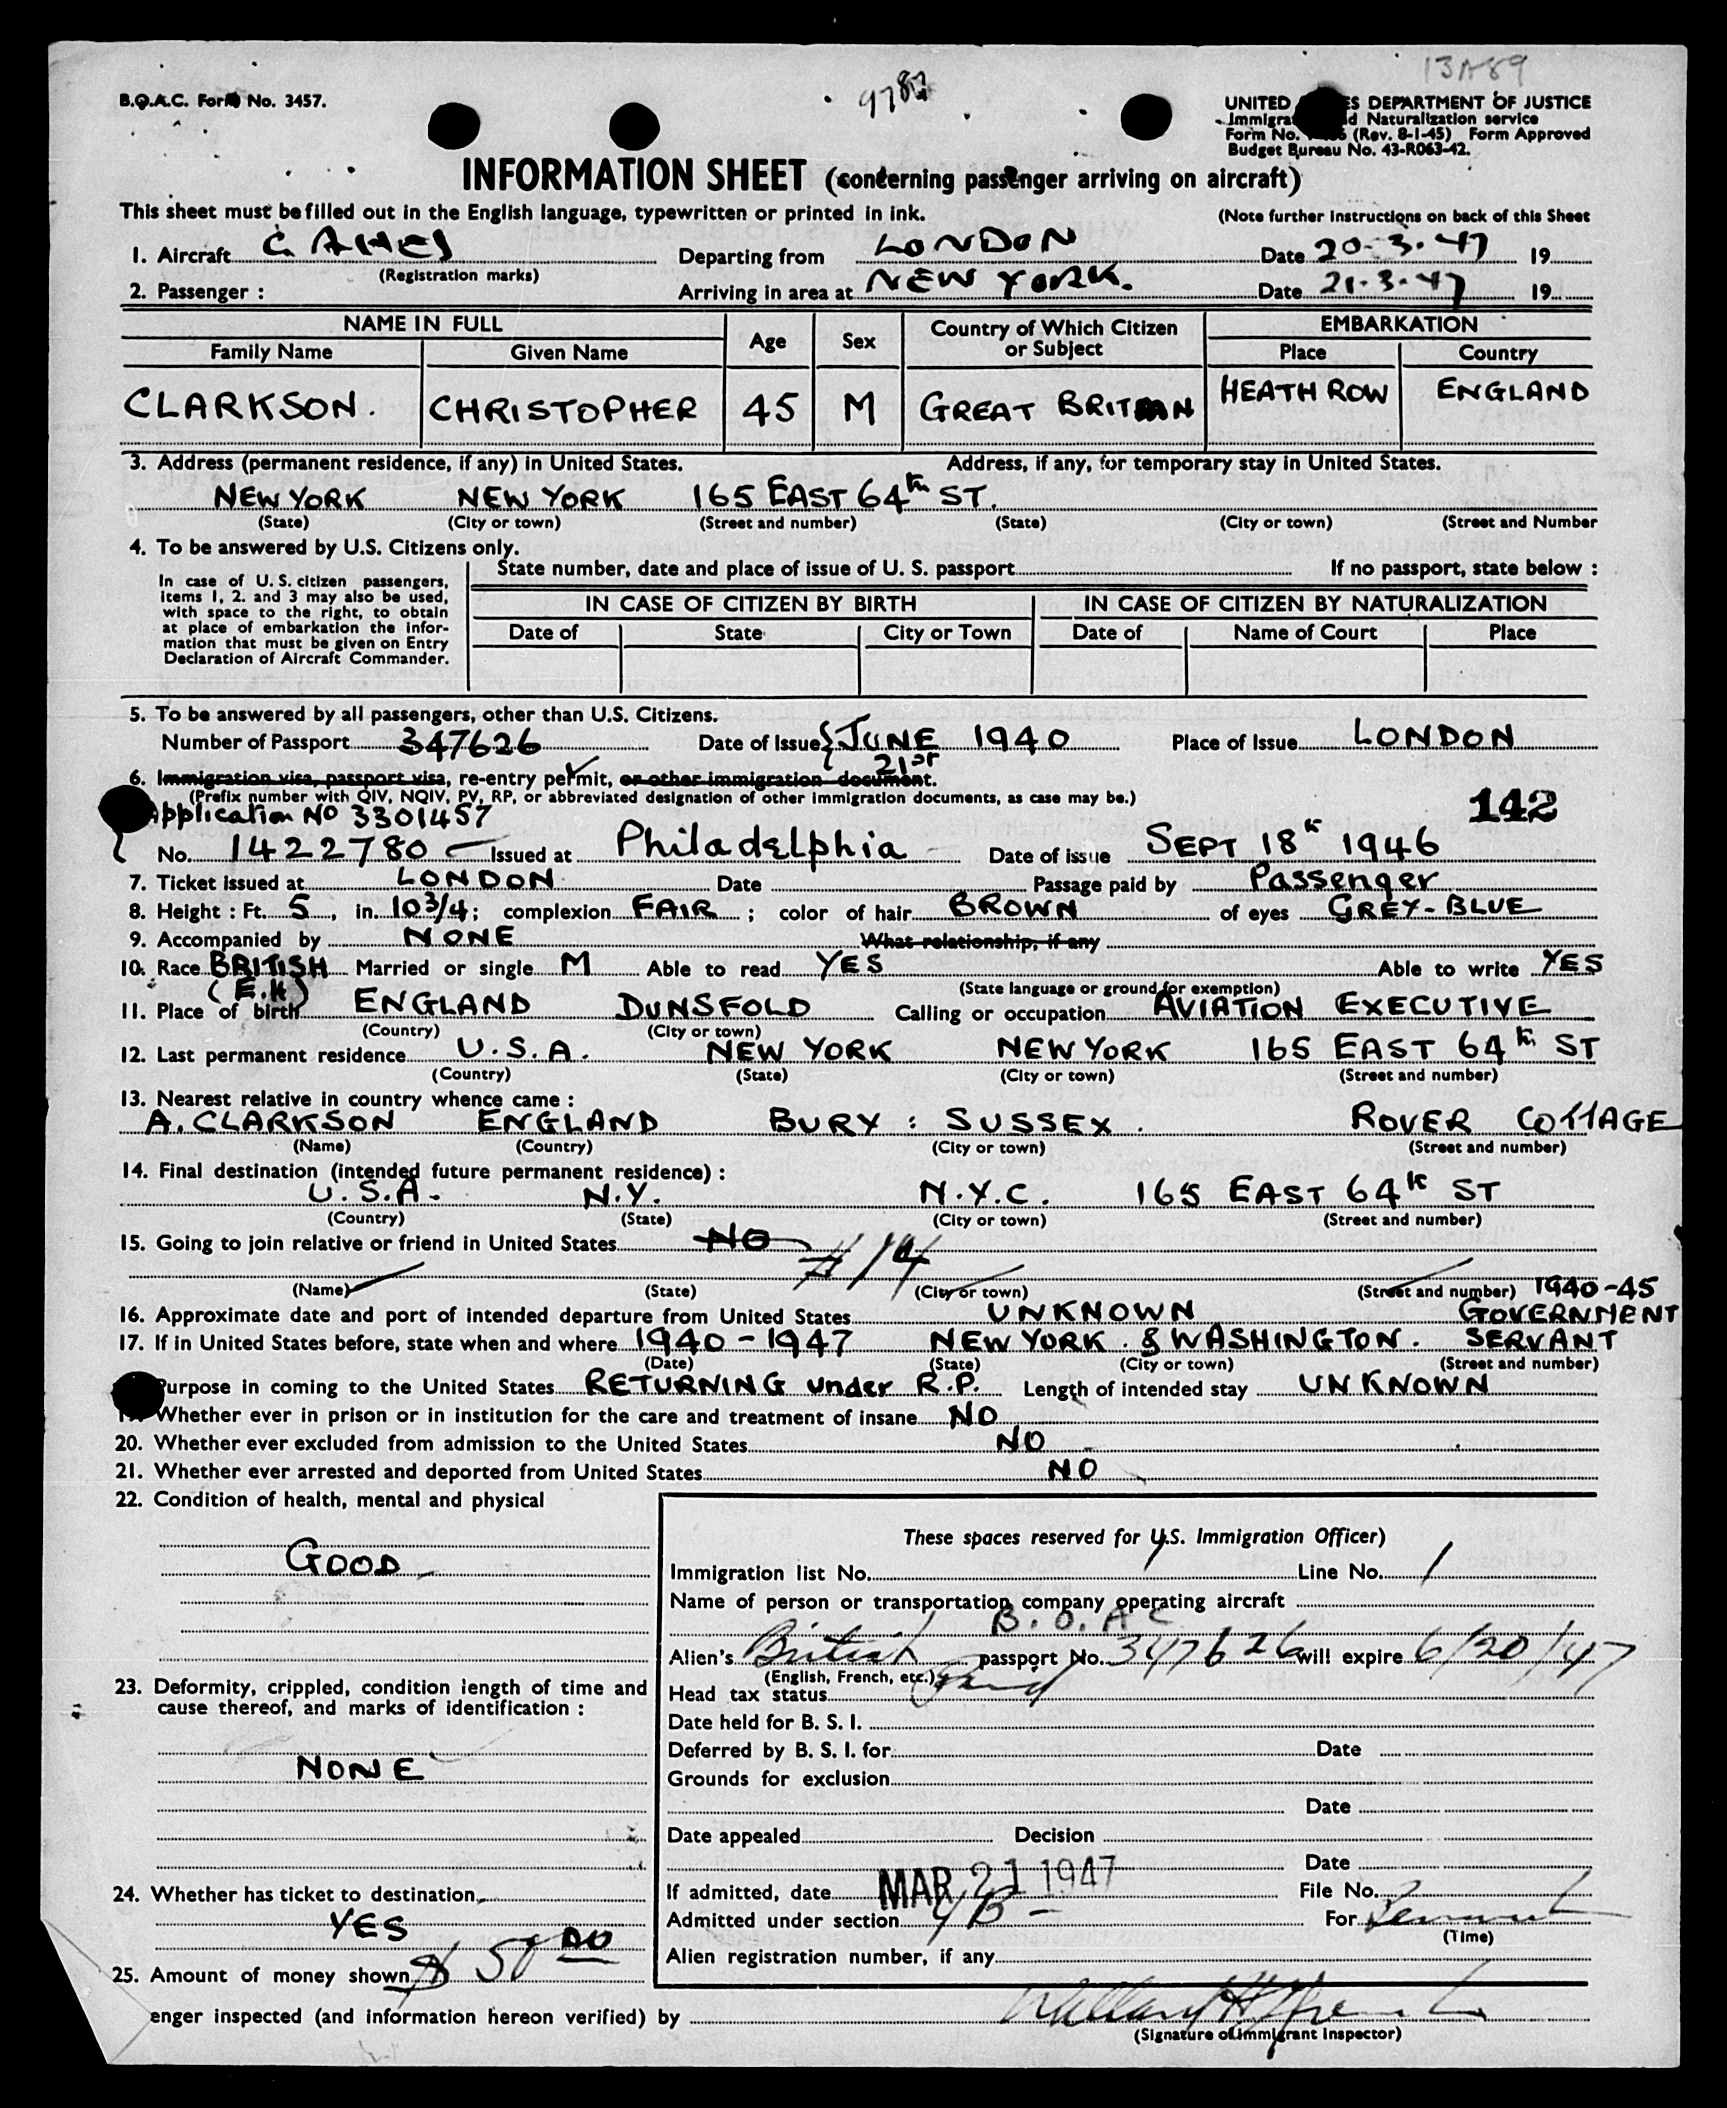 13A89
9782
B.O.A.C. Form No. 3457.
UNITED ES DEPARTMENT OF JUSTICE
Immigra d Naturalization service
Form No. (Rev. 8-1-45) Form Approved
Budget Bureau No. 43-R063-42.
INFORMATION SHEET (concerning passenger arriving on aircraft)
This sheet must be filled out in the English language, typewritten or printed in ink. (Note further Instructions on back of this Sheet
1. Aircraft G AHEJ Departing from LONDON Date 20-3-47 19
(Registration marks)
2. Passenger : Arriving in area at NEW YORK. Date 21-3-47 19
NAME IN FULL Age Sex Country of Which Citizen or Subject EMBARKATION
Family Name Given Name Place Country
CLARKSON. CHRISTOPHER 45 M GREAT BRITAIN HEATH ROW ENGLAND
3. Address (permanent residence, if any) in United States. Address, if any, for temporary stay in United States.
NEW YORK NEW YORK 165 EAST 64th ST.
(State) (City or town) (Street and number) (State) (City or town) (Street and Number
4. To be answered by U.S. Citizens only.
In case of U.S. citizen passengers, items 1, 2. and 3 may also be used, with space to the right, to obtain at place of embarkation the infor-mation that must be given on Entry Declaration of Aircraft Commander.
State number, date and place of issue of U. S. passport If no passport, state below :
IN CASE OF CITIZEN BY BIRTH IN CASE OF CITIZEN BY NATURALIZATION
Date of State City or Town Date of Name of Court Place
5. To be answered by all passengers, other than U.S. Citizens.
Number of Passport 347626 Date of Issue JUNE 1940 Place of Issue LONDON
21st
6. Immigration visa, passport visa, re-entry permit, or other immigration document.
(Prefix number with QIV, NQIV, PV, RP, or abbreviated designation of other immigration documents, as case may be.)
Application No 3301457 142
No. 1422780 Issued at Philadelphia Date of issue SEPT 18th 1946
7. Ticket issued at LONDON Date Passage paid by Passenger
8. Height : Ft. 5, in. 10 3/4; complexion FAIR ; color of hair BROWN of eyes GREY-BLUE
9. Accompanied by NONE What relationship, if any
10. Race BRITISH Married or single M Able to read YES Able to write YES
(State language or ground for exemption)
11. Place of birth ENGLAND DUNSFOLD Calling or occupation AVIATION EXECUTIVE
(Country) (City or town)
12. Last permanent residence U.S.A. NEW YORK NEW YORK 165 EAST 64th ST
(Country) (State) (City or town) (Street and number)
13. Nearest relative in country whence came :
A. CLARKSON ENGLAND BURY : SUSSEX. ROVER COTTAGE
(Name) (Country) (City or town) (Street and number)
14. Final destination (intended future permanent residence) :
U.S.A. N.Y. N.Y.C. 165 EAST 64th ST
(Country) (State) (City or town) (Street and number)
15. Going to join relative or friend in United States NO
#14
(Name) (State) (City or town) (Street and number) 1940-45
16. Approximate date and port of intended departure from United States UNKNOWN GOVERNMENT
17. If in United States before, state when and where 1940 - 1947 NEW YORK. & WASHINGTON. SERVANT
(Date) (State) (City or town) (Street and number)
Purpose in coming to the United States RETURNING under R.P. Length of intended stay UNKNOWN
Whether ever in prison or in institution for the care and treatment of insane NO
20. Whether ever excluded from admission to the United States NO
21. Whether ever arrested and deported from United States NO
22. Condition of health, mental and physical
GOOD
23. Deformity, crippled, condition length of time and
cause thereof, and marks of identification :
NONE
24. Whether has ticket to destination
YES
25. Amount of money shown $ 50 00
These spaces reserved for U.S. Immigration Officer)
Immigration list No. Line No. 1
Name of person or transportation company operating aircraft
B.O.A.C
Alien's British passport No. 347626 will expire 6/20/47
(English, French, etc.)
Head tax status
Date held for B. S. I.
Deferred by B. S. I. for Date
Grounds for exclusion
Date
Date appealed Decision
Date
If admitted, date MAR 21 1947 File No.
Admitted under section 4B - For
(Time)
Alien registration number, if any
enger inspected (and information hereon verified) by
(Signature of Immigrant Inspector)